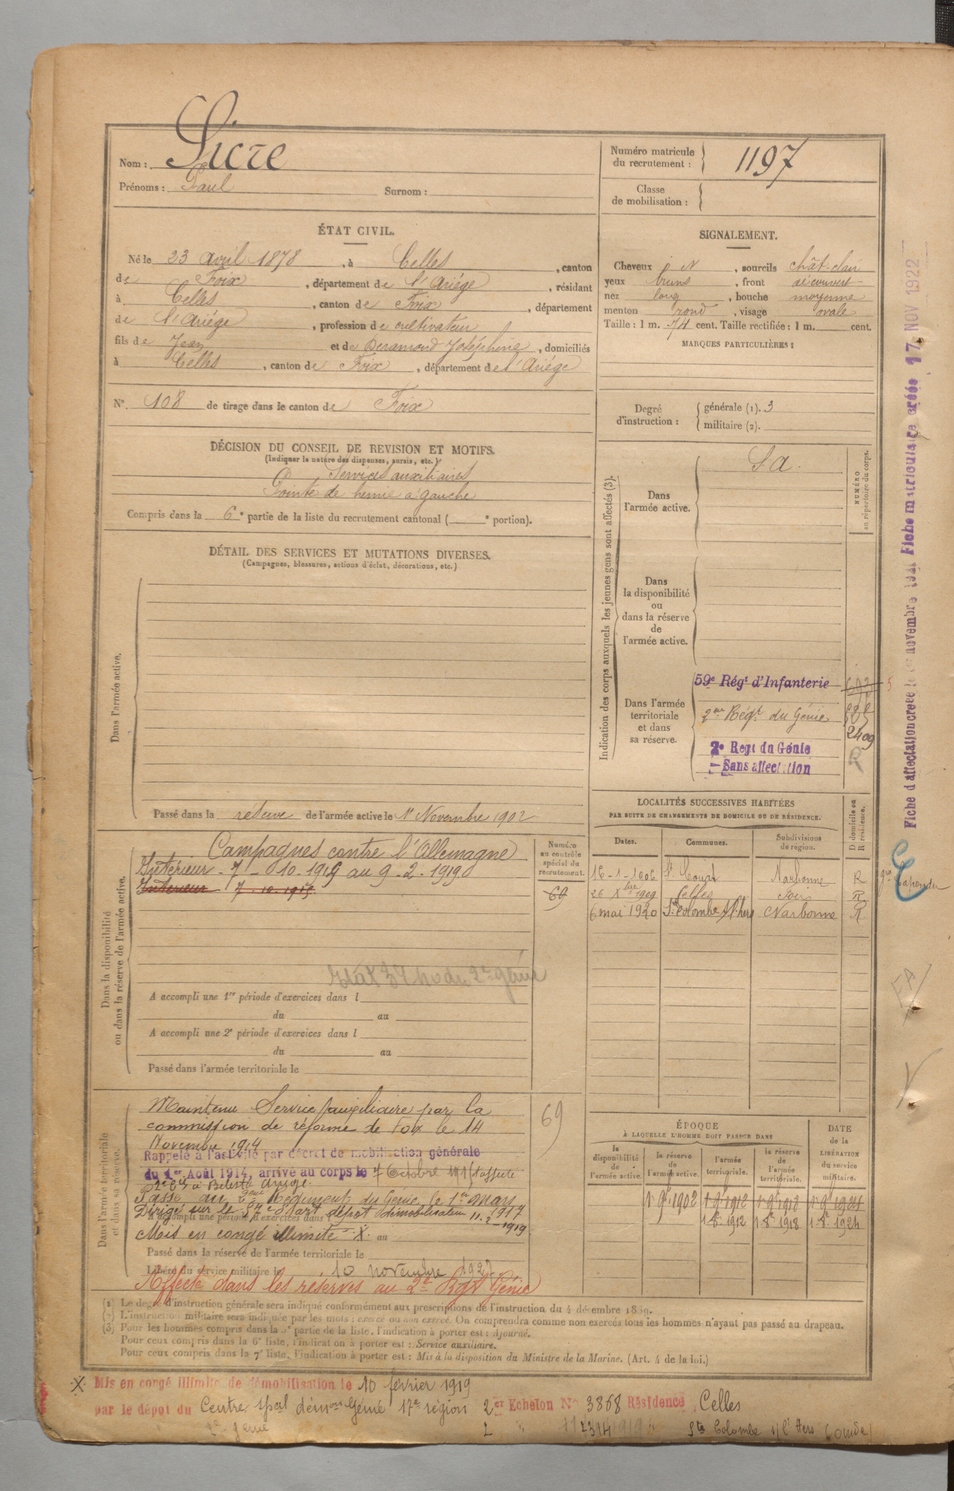 Nom : Sicre
Prénoms : Paul Surnom :
Numéro matricule du recrutement : 1197
Classe de mobilisation :
ÉTAT CIVIL.
Né le 23 avril 1878, à Celles, canton
de Foix, département de l'Ariège, résidant
à Celles, canton de Foix, département
de l'Ariége, profession de cultivateur
fils de Jean et de Deramond Joséphine, domiciliés
à Celles, canton de Foix, département de l'Ariége
N° 108 de tirage dans le canton de Foix
SIGNALEMENT.
Cheveux N, sourcils chât-clair
yeux bruns, front découvert
nez long, bouche moyenne
menton rond, visage ovale
Taille : 1 m. 74 cent. Taille rectifiée : 1 m. cent.
MARQUES PARTICULIÈRES :
Degré d'instruction : générale (1). 3
militaire (2).
DÉCISION DU CONSEIL DE REVISION ET MOTIFS.
(Indiquer la nature des dispenses, sursis, etc.)
Services auxiliaires
Pointe de hernie à gauche
Compris dans la 6e partie de la liste du recrutement cantonal ( e portion).
DÉTAIL DES SERVICES ET MUTATIONS DIVERSES.
(Campagnes, blessures, actions d'éclat, décorations, etc.)
Dans l'armée active.
Passé dans la réserve de l'armée active le 1er Novembre 1902
Indication des corps auxquels les jeunes gens sont affectés (3).
NUMÉRO au répertoire du corps.
Dans l'armée active.
S a.
Dans la disponibilité ou dans la réserve de l'armée active.
Dans l'armée territoriale et dans sa réserve.
59e Régt d'Infanterie
2me Régt du Génie
2409
2e Regt du Génie
Sans affectation
LOCALITÉS SUCCESSIVES HABITÉES
PAR SUITE DE CHANGEMENTS DE DOMICILE OU DE RÉSIDENCE.
Dates. Communes. Subdivisions de région. D domicile ou R résidence.
Narbonne R
Celles Foix R
6 mai 1920 Ste Colombe s/l'hers Narbonne R
Dans la disponibilité ou dans la réserve de l'armée active.
Numéro au contrôle spécial du recrutement.
Campagnes contre l'Allemagne
Intérieur - 7-10-1915 au 9-2-1919
Intérieur 7-10-1915
A accompli une 1re période d'exercices dans l
du au
A accompli une 2e période d'exercices dans l
du au
Passé dans l'armée territoriale le
Dans l'armée territoriale et dans sa réserve.
69
Maintenu Service auxiliaire par la
commission de réforme de Foix le 14
Novembre 1914
Rappelé à l'activité par décret de mobilisation générale
du 1er Août 1914, arrivé au corps le 7 Octobre 1915
Passé au 2eme Régiment du Génie, le 1er mars 1917
Mis en congé illimité X. au
Passé dans la réserve de l'armée territoriale le
Libéré du service militaire le 10 novembre 1927
Affecté dans les réserves au 2e Rgt Génie
ÉPOQUE
À LAQUELLE L'HOMME DOIT PASSER DANS
la disponibilité de l'armée active. la réserve de l'armée active. l'armée territoriale. la réserve de l'armée territoriale.
DATE de la LIBÉRATION du service militaire.
(1) Le degré d'instruction générale sera indiqué conformément aux prescriptions de l'instruction du 4 décembre 1889.
(2) L'instruction militaire sera indiquée par les mots : exercé ou non exercé. On comprendra comme non exercés tous les hommes n'ayant pas passé au drapeau.
(3) Pour les hommes compris dans la 5e partie de la liste, l'indication à porter est : Ajourné.
Pour ceux compris dans la 6e liste, l'indication à porter est : Service auxiliaire.
Pour ceux compris dans la 7e liste, l'indication à porter est : Mis à la disposition du Ministre de la Marine. (Art. 4 de la loi.)
X Mis en congé illimité de démobilisation le 10 février 1919
par le dépôt du Centre Spal démon Génie 17e région 2er Echelon N° 3868 Résidence Celles
Ste Colombe s/l'Hers (Aude)
17 NOV 1922